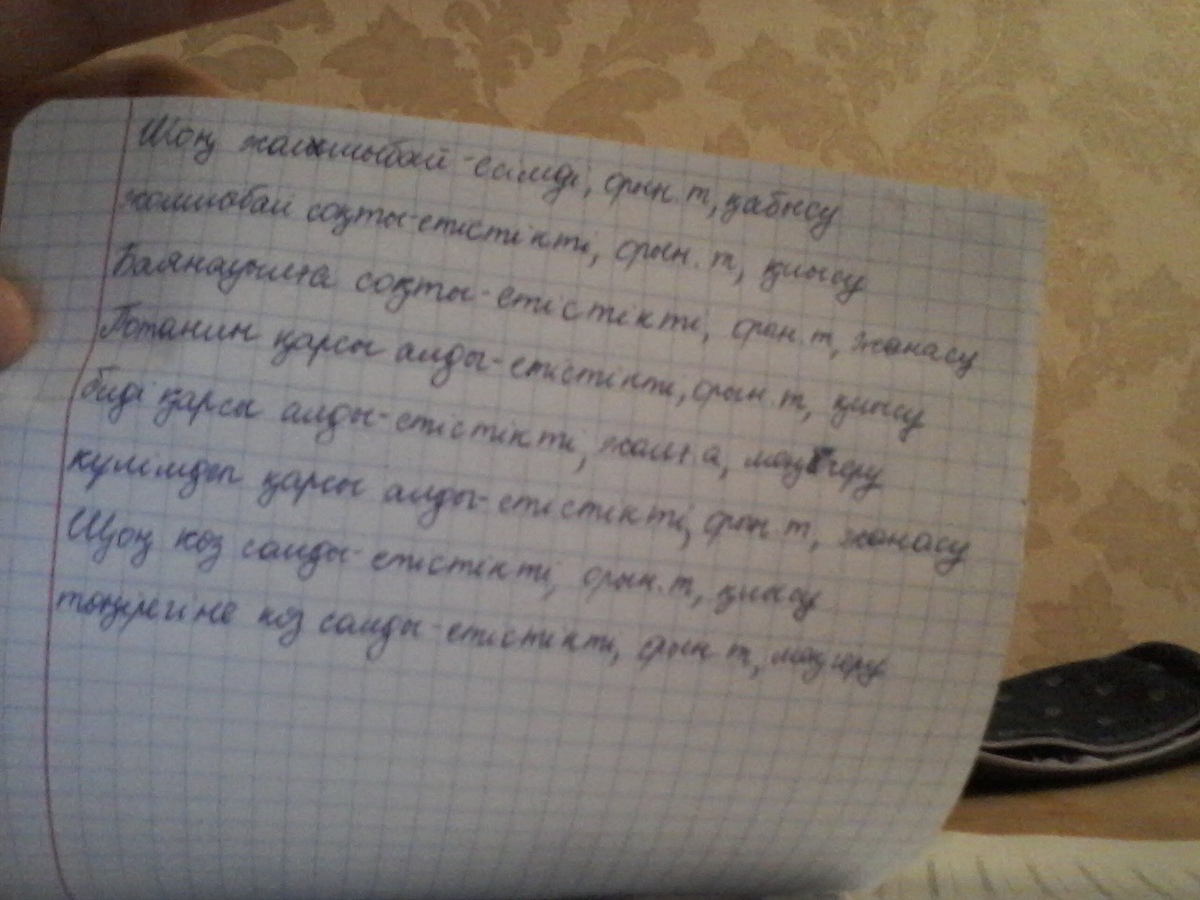 Шоң жалшыбай-есімді, орын.т, қабысу
жалшобай соқты-етістікті, орын.т, қиысу
Баянауылға соқты-етістікті, орын.т, жанасу
Потанин қарсы алды-етістікті, орын.т, қиысу
биді қарсы алды-етістікті, жалғ.а, меңгеру
күлімдеп қарсы алды-етістікті, орын.т, жанасу
Шоң көз салды-етістікті, орын.т, қиысу
төңірегіне көз салды-етістікті, орын.т, меңгеру